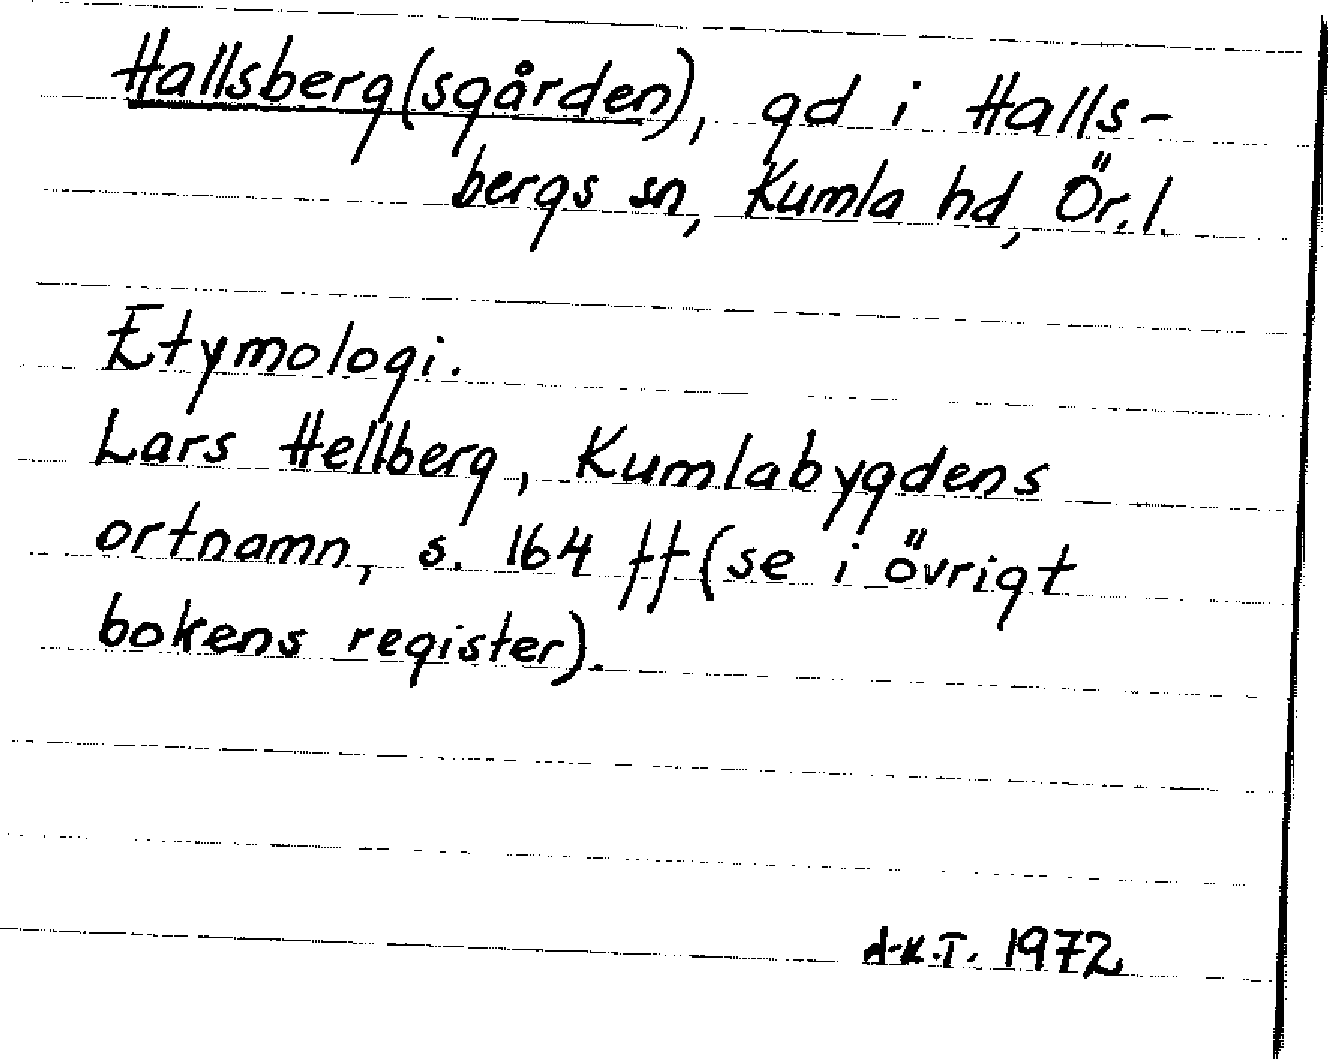 Hallsberg(sgården), gd i Halls-
bergs sn, Kumla hd, Ör.l.
Etymologi.
Lars Hellberg, Kumlabygdens
ortnamn, s. 164 ff (se i övrigt
bokens register).
A-K.T. 1972